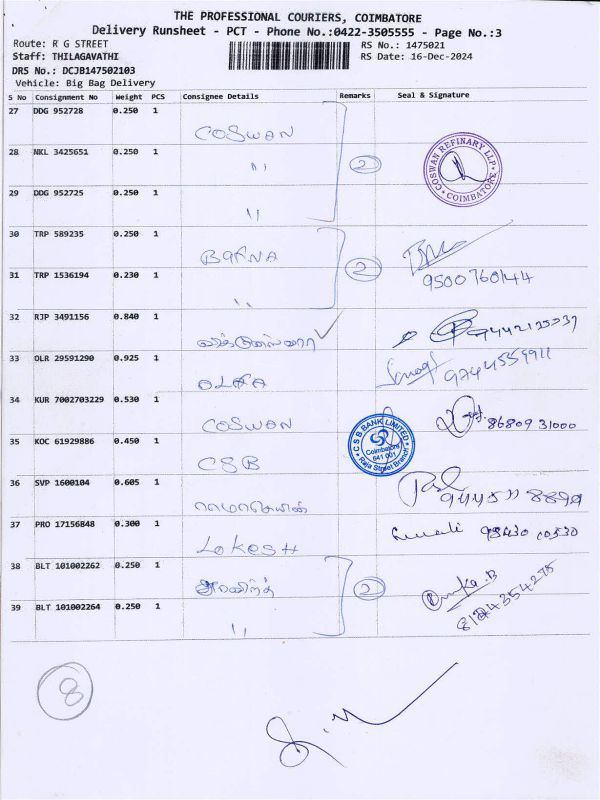 THE PROFESSIONAL COURIERS, COIMBATORE
Delivery Runsheet - PCT - Phone No.:0422-3505555 - Page No.:3
Route: R G STREET RS No.: 1475021
Staff: THILAGAVATHI RS Date: 16-Dec-2024
DRS No.: DCJB147502103
Vehicle: Big Bag Delivery
S No Consignment No Weight PCS Consignee Details Remarks Seal & Signature
27 DDG 952728 0.250 1
COSWAN
28 NKL 3425651 0.250 1
" 2
COSWAN REFINARY LLP
COIMBATORE
29 DDG 952725 0.250 1
"
30 TRP 589235 0.250 1
BAFNA 2
9500760144
31 TRP 1536194 0.230 1
"
32 RJP 3491156 0.840 1
33 OLR 29591290 0.925 1
34 KUR 7002703229 0.530 1
COSWAN
86809 31000
35 KOC 61929886 0.450 1
CSB
CSB BANK LIMITED
Coimbatore
641 001
Raja Street Branch
36 SVP 1600104 0.605 1
37 PRO 17156848 0.300 1
LOKESH
98430 10530
38 BLT 101002262 0.250 1
2
39 BLT 101002264 0.250 1
"
8